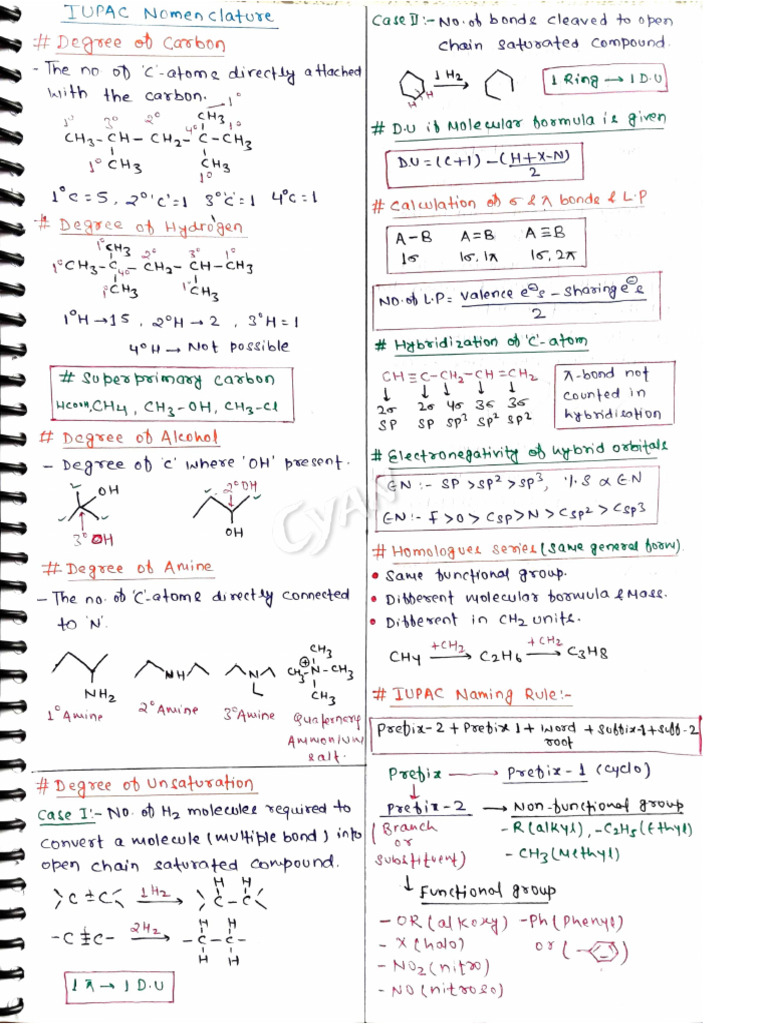 IUPAC Nomenclature
# Degree of Carbon
- The no of 'C'-atoms directly attached
with the carbon.
1°
CH3
1° 3° 2° 4° 1°
CH3-CH-CH2-C-CH3
1° CH3 CH3
1°
1°C=5, 2°'C'=1 3°'C'=1 4°C=1
# Degree of Hydrogen
1° CH3 2° 3° 1°
1°CH3-C-CH2-CH-CH3
4°
1°CH3 1°CH3
1°H→15, 2°H→2, 3°H=1
4°H→Not possible
# Superprimary Carbon
HCOOH, CH4, CH3-OH, CH3-Cl
# Degree of Alcohol
- Degree of 'C' where 'OH' present.
OH
3°OH
2°OH
OH
# Degree of Amine
- The no. of 'C'-atoms directly connected
to 'N'.
NH2
1°Amine
NH
2°Amine
N
3°Amine
CH3
⊕
CH3-N-CH3
CH3
Quaternary
Ammonium
salt.
# Degree of Unsaturation
Case I:- No. of H2 molecules required to
convert a molecule (multiple bond) into
open chain saturated compound.
C=C 1H2→ H H
C-C
-C≡C- 2H2→ H H
-C-C-
H H
1π→1 D.U
Case II:- No. of bonds cleaved to open
chain saturated compound.
H H 1H2→
1 Ring→1 D.U
# D.U if Molecular formula is given
D.U=(C+1)-(H+X-N)
2
# Calculation of σ & π bonds & L.P
A-B A=B A≡B
1σ 1σ,1π 1σ,2π
No. of L.P= Valence e⊖s - sharing e⊖s
2
# Hybridization of 'C'-atom
CH≡C-CH2-CH=CH2
↓ ↓ ↓ ↓ ↓
2σ 2σ 4σ 3σ 3σ
SP SP SP3 SP2 SP2
π-bond not
counted in
hybridisation
# Electronegativity of hybrid orbitals
EN:- SP>SP2>SP3, %S∝EN
EN:- F>O>Csp>N>Csp2>Csp3
# Homologues series (same general form).
• Same functional group.
• Different molecular formula & Mass.
• Different in CH2 units.
CH4 +CH2→ C2H6 +CH2→ C3H8
# IUPAC Naming Rule:-
Prefix-2+Prefix 1+Word +Suffix-1+Suff-2
root
Prefix → Prefix-1 (cyclo)
↓
Prefix-2 → Non-functional group
(Branch
or
substituent)
-R(alkyl), -C2H5(Ethyl)
-CH3(Methyl)
↓ Functional group
-OR(alkoxy) -Ph(Phenyl)
-X(halo) or (-)
-NO2(nitro)
-NO(nitroso)
Cyan